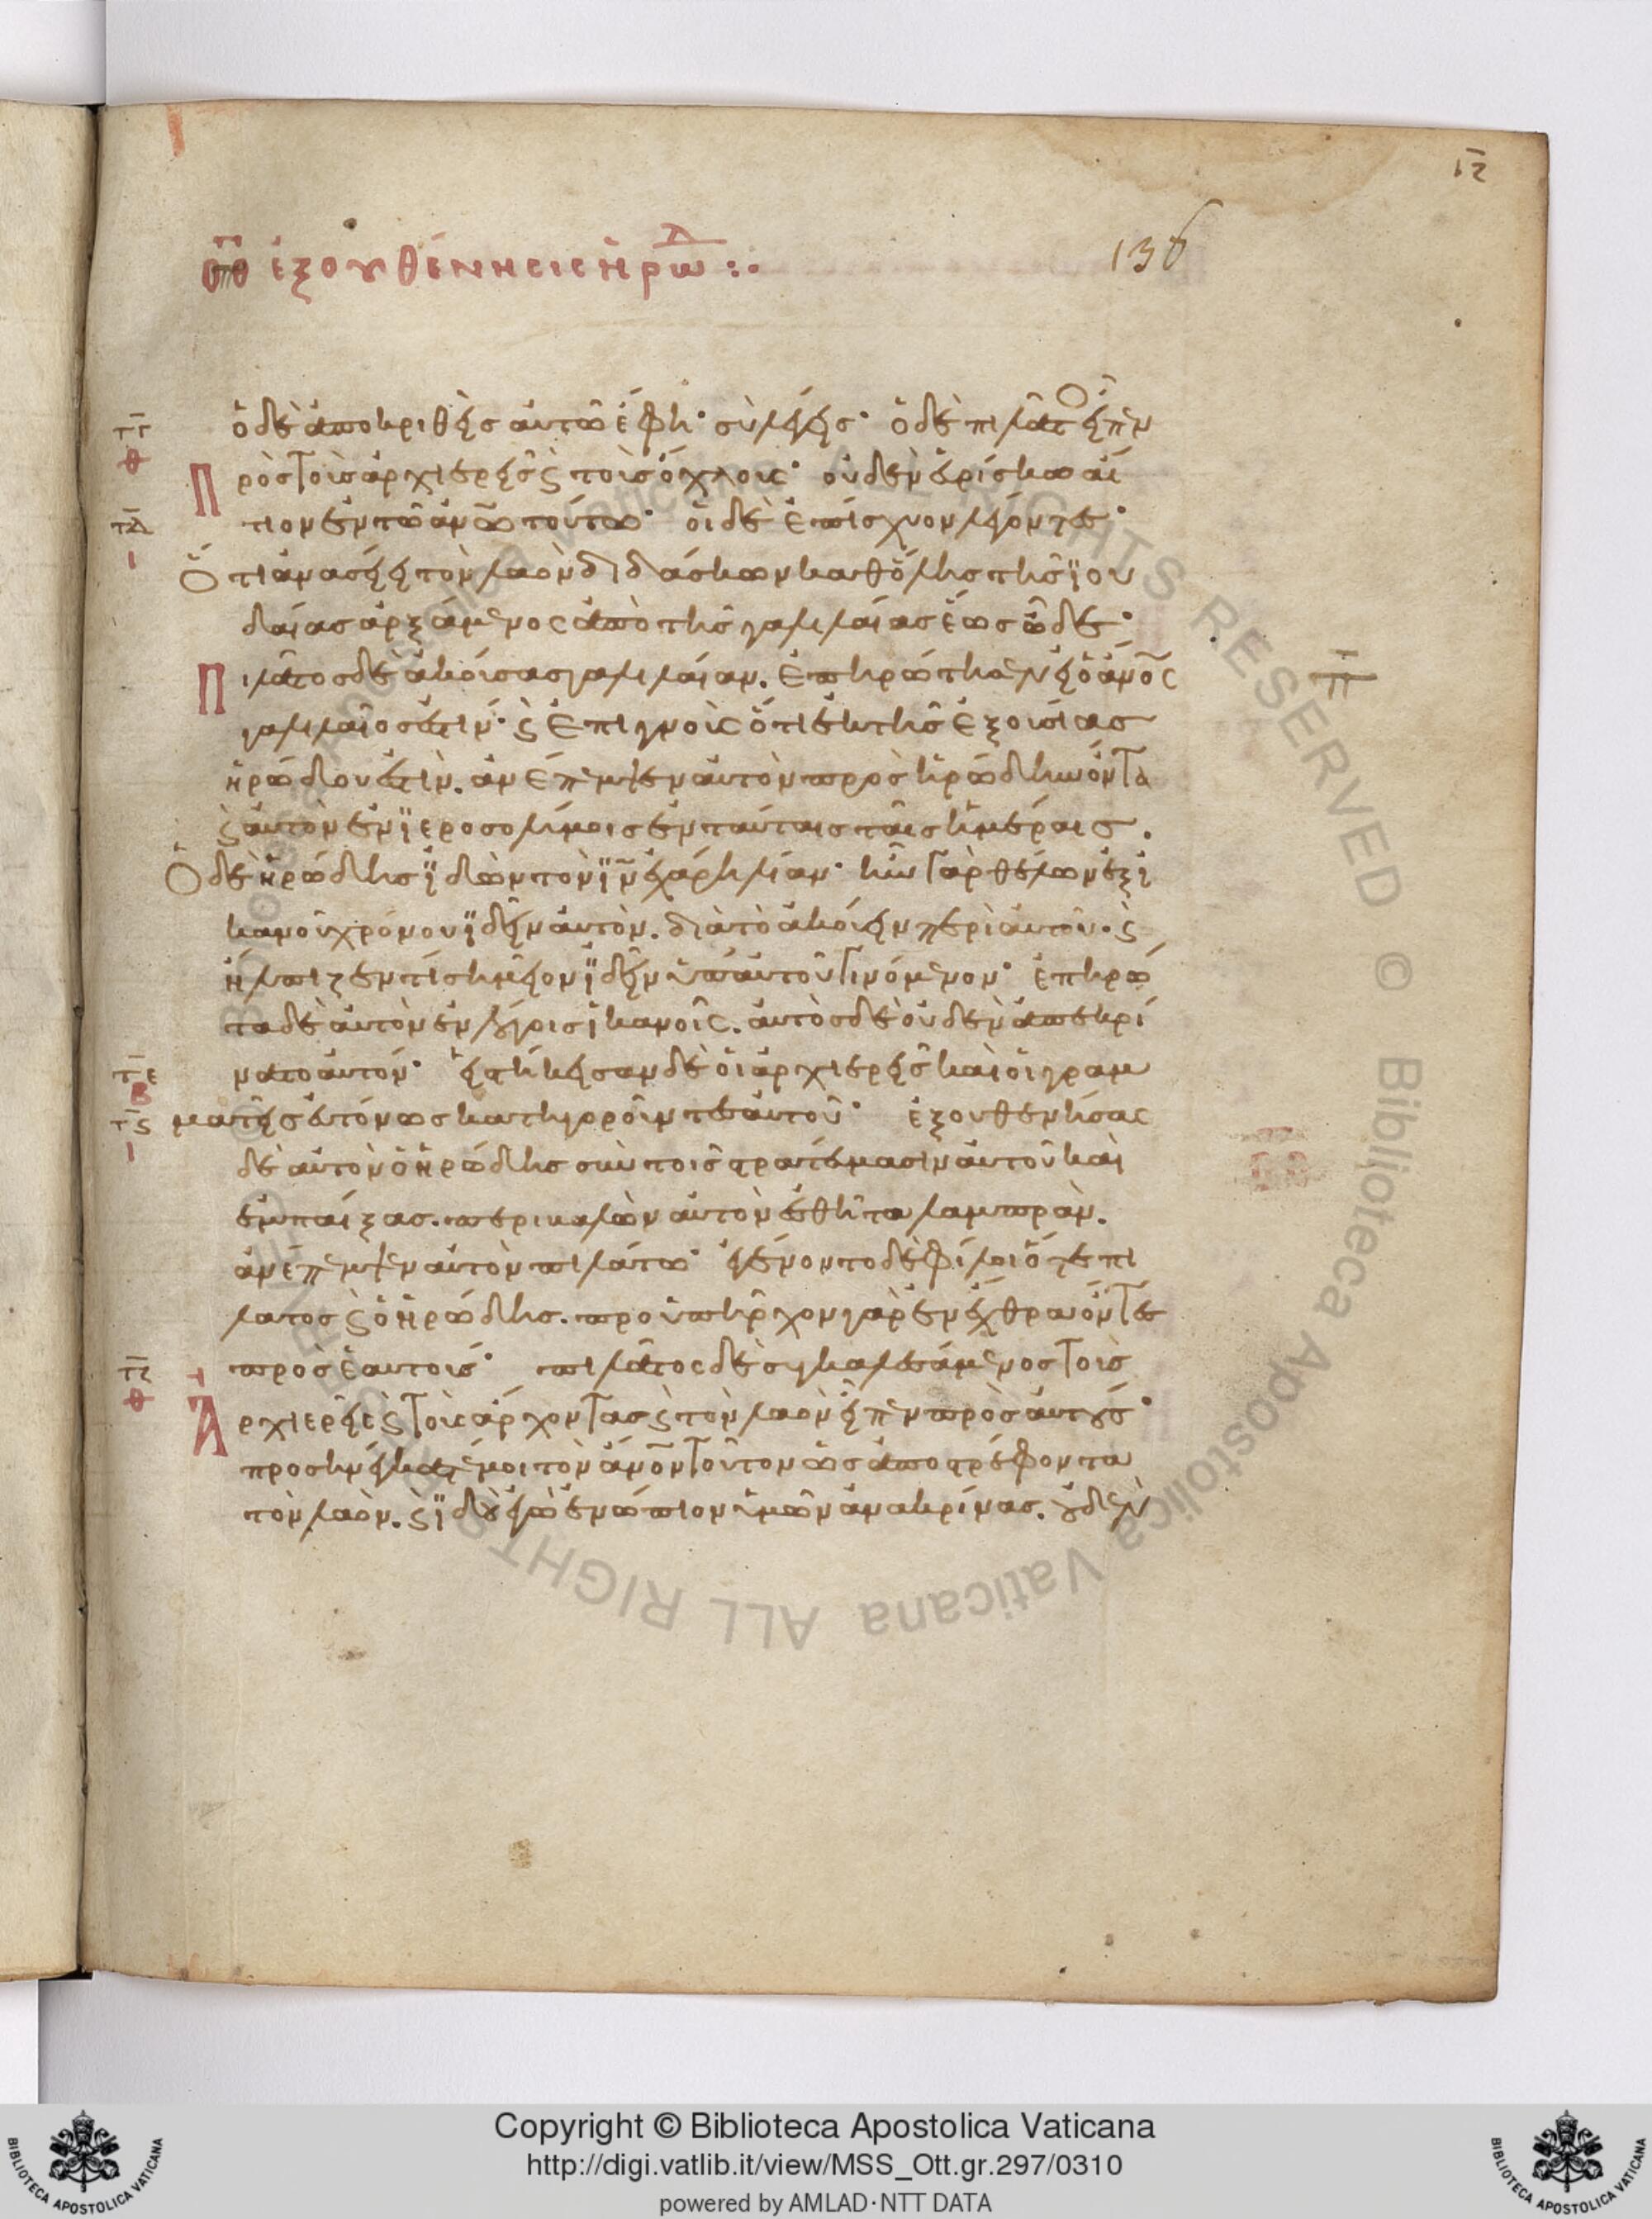 ιζ
136
οθ ἐξουθενήσεις ἡρώδ :·
τγ ὁ δὲ ἀποκριθεὶς αὐτῶ ἔφη· σὺ λέγεις· ὁ δὲ πιλάτος εἶπεν
θ Προς τοὺς ἀρχιερεῖς ϛ τοὺς ὄχλους· οὐδὲν εὑρίσκω αἴ
τδ τιον ἐν τῶ ἀνω τούτω· οἱ δὲ ἐπίσχυον λέγοντες·
ι Ὅτι ἀνασείει τὸν λαὸν διδάσκων καθ' ὅλης τῆς ϊου
δαίας ἀρξάμενος ἀπὸ τῆς γαλιλαίας ἕως ὧδε·
Πιλάτος δὲ ἀκούσας γαλιλαίαν. ἐπηρώτησεν εἰ ὁ ἀνος π
γαλιλαῖος ἐστιν· ϛ ἐπιγνοὺς ὅτι ἐκ τῆς ἐξουσίας
ἡρώδου ἐστὶν. ἀνέπεμψεν αὐτὸν προς ἡρώδην ὄντα
ϛ αὐτὸν ἐν ϊεροσολύμοις ἐν ταύταις ταῖς ἡμέραις.
Ὁ δὲ ἡρώδης ϊδὼν τὸν ϊν ἐχάρη λίαν· ἦν γὰρ θέλων ἐξ ϊ
κανοῦ χρόνου ϊδεῖν αὐτὸν. διὰ τὸ ἀκούειν περὶ αὐτοῦ· ϛ
ἤλπιζεν τί σημεῖον ϊδεῖν ὑπ' αὐτοῦ γινόμενον· ἐπηρώ
τα δὲ αὐτὸν ἐν λόγοις ἱκανοῖς. αὐτὸς δὲ οὐδὲν ἀπεκρί
τε νατο αὐτόν· εἱστήκεισαν δὲ οἱ ἀρχιερεῖς καὶ οἱ γραμ
β
τϛ ματεῖς εὐτόνως κατηγοροῦντες αὐτοῦ· ἐξουθενήσας
ι δὲ αὐτὸν ὁ ἡρώδης σὺν τοῖς στρατεύμασιν αὐτοῦ καὶ
ἐμπαίξας. περιβαλὼν αὐτὸν ἐσθῆτα λαμπρὰν.
ἀνέπεμψεν αὐτὸν πιλάτω· ἐγένοντο δὲ φίλοι ὅ τε πι
λατος ϛ ὁ ἡρώδης. προυπῆρχον γὰρ ἐν ἔχθρα ὄντες
τζ πρὸς ἑαυτούς· πιλάτος δὲ συγκαλεσάμενος τοὺς
θ Ἀρχιερεῖς ϛ τοὺς ἄρχοντας ϛ τὸν λαὸν εἶπεν πρὸς αὐτούς·
προσηνέγκατέ μοι τὸν ἀνον τοῦτον ὡς ἀποστρέφοντα
τὸν λαὸν. ϛ ϊδοὺ ἐγὼ ἐνώπιον ὑμῶν ἀνακρίνας. οὐδὲν
Copyright © Biblioteca Apostolica Vaticana
http://digi.vatlib.it/view/MSS_Ott.gr.297/0310
powered by AMLAD·NTT DATA